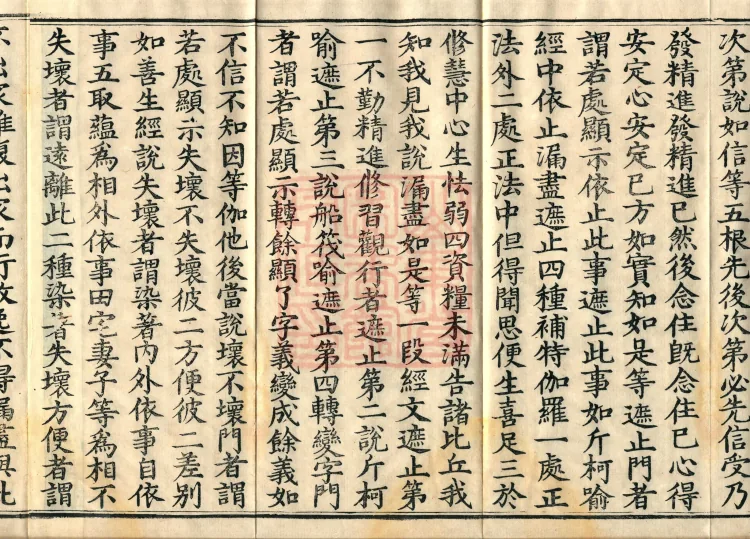 次第說如信等五根先後次第必先信受乃
發精進發精進已然後念住旣念住已心得
安定心安定已方如實知如是等遮止門者
謂若處顯示依止此事遮止此事如斤柯喻
經中依止漏盡遮止四種補特伽羅一處正
法外二處正法中但得聞思便生喜足三於
修慧中心生怯弱四資糧未滿告諸比丘我
知我見我說漏盡如是等一段經文遮止第
一不勤精進修習觀行者遮止第二說斤柯
喻遮止第三說船筏喻遮止第四轉變字門
者謂若處顯示轉餘顯了字義變成餘義如
不信不知因等伽他後當說壞不壞門者謂
若處顯示失壞不失壞彼二方便彼二差別
如善生經說失壞者謂染著內外依事自依
事五取蘊爲相外依事田宅妻子等爲相不
失壞者謂遠離此二種染著失壞方便者謂
不出家雖復出家而行放逸不得漏盡與此